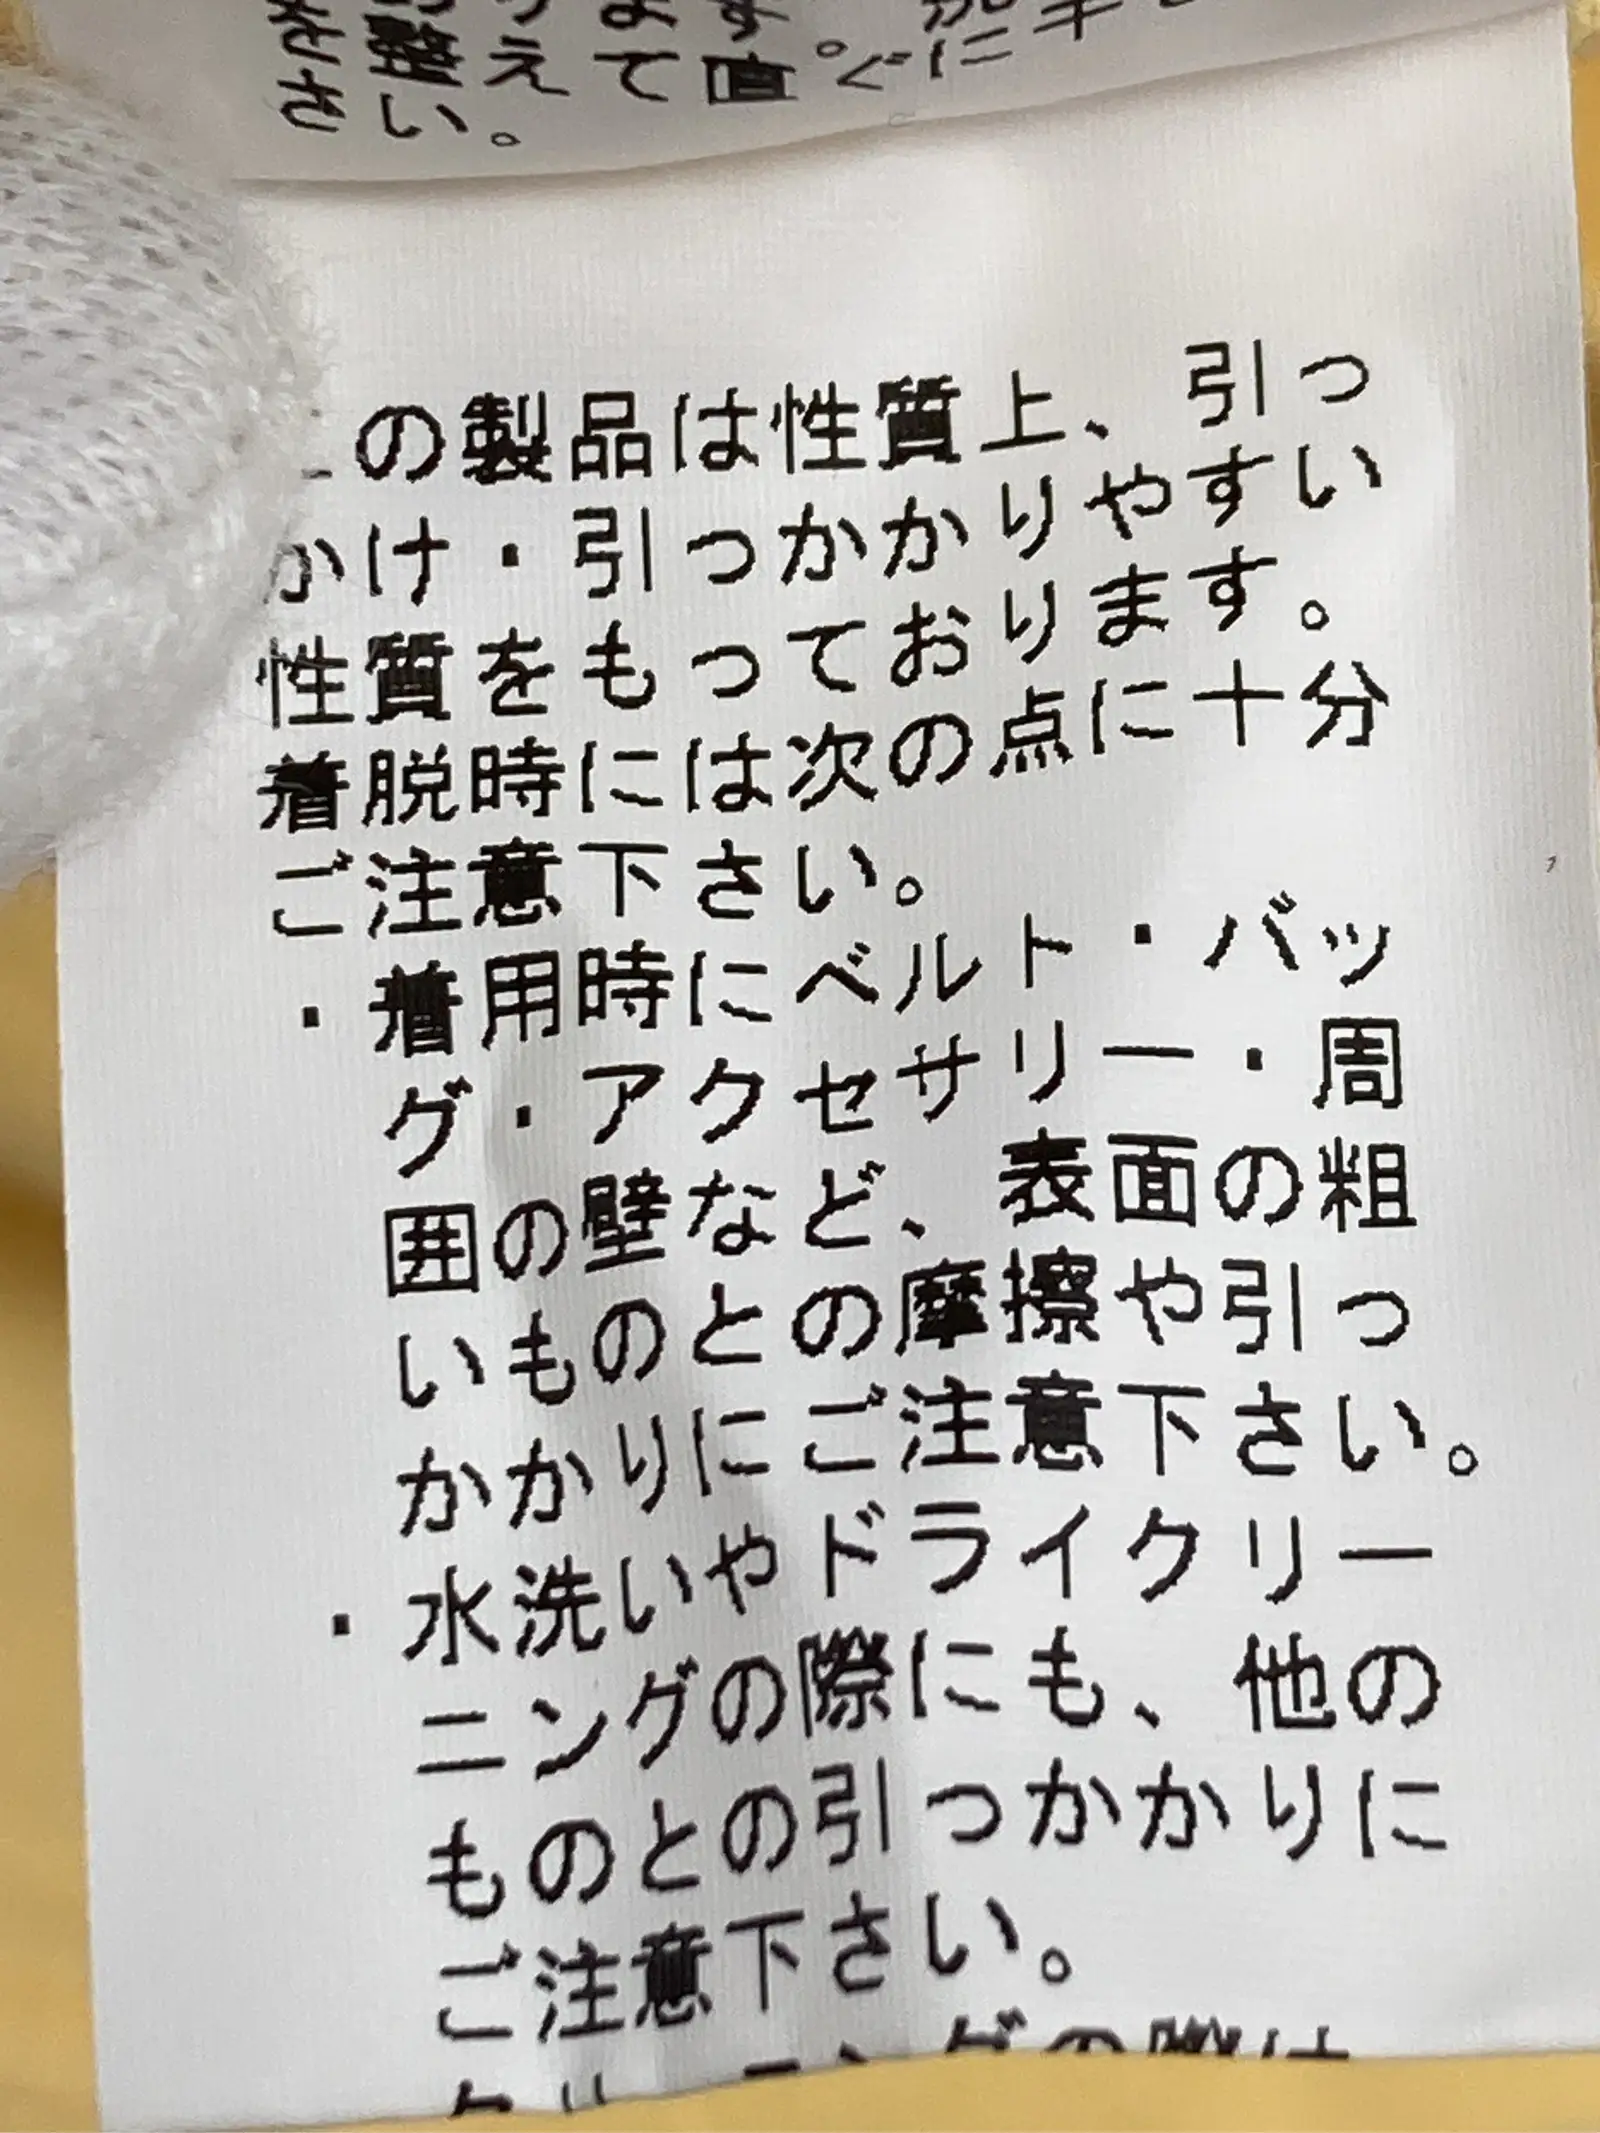 整えて直ぐに
さい。
の製品は性質上、引っ
かけ・引っかかりやすい
性質をもっております。
着脱時には次の点に十分
ご注意下さい。
・着用時にベルト・バッ
グ・アクセサリー・周
囲の壁など、表面の粗
いものとの摩擦や引っ
かかりにご注意下さい。
・水洗いやドライクリー
ニングの際にも、他の
ものとの引っかかりに
ご注意下さい。
ングの際は